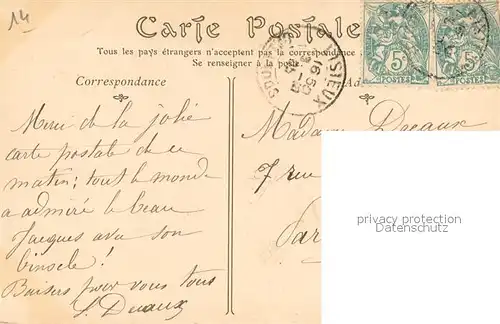 14
Carte Postale
Tous les pays étrangers n'acceptent pas la correspondance
Se renseigner à la poste.
LISIEUX
16 50
5c
5c
POSTES
POSTES
Correspondance
Merci de la jolie
carte postale de ce
matin; tout le monde
a admiré le beau
Jacques avec son
binocle!
Baisers pour vous tous
Madame Dreaux
7 rue
Par
privacy protection
Datenschutz